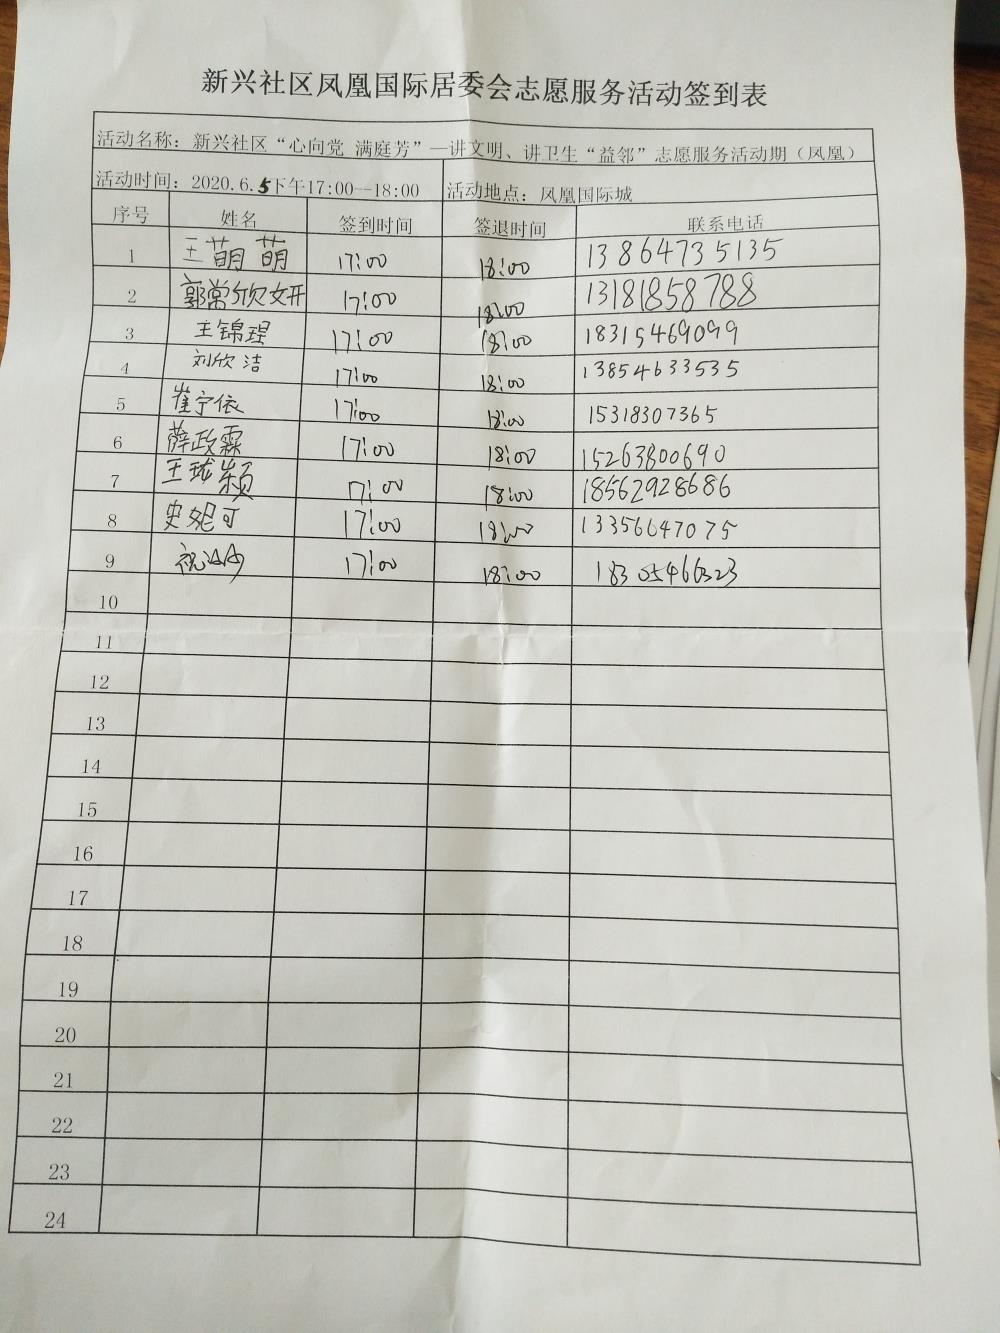 新兴社区凤凰国际居委会志愿服务活动签到表
活动名称：新兴社区“心向党 满庭芳”—讲文明、讲卫生“益邻”志愿服务活动期（凤凰）
活动时间：2020.6.5下午17:00—18:00 活动地点：凤凰国际城
序号 姓名 签到时间 签退时间 联系电话
1 王萌萌 17:00 18:00 13864735135
2 郭常欣妍 17:00 18:00 13181858788
3 王锦瑆 17:00 18:00 18315469099
4 刘欣洁 17:00 18:00 13854633535
5 崔宁依 17:00 18:00 15318307365
6 薛政霖 17:00 18:00 15263800690
7 王珑颖 17:00 18:00 18562928686
8 史妮可 17:00 18:00 13356647075
9 祝 17:00 18:00
10
11
12
13
14
15
16
17
18
19
20
21
22
23
24